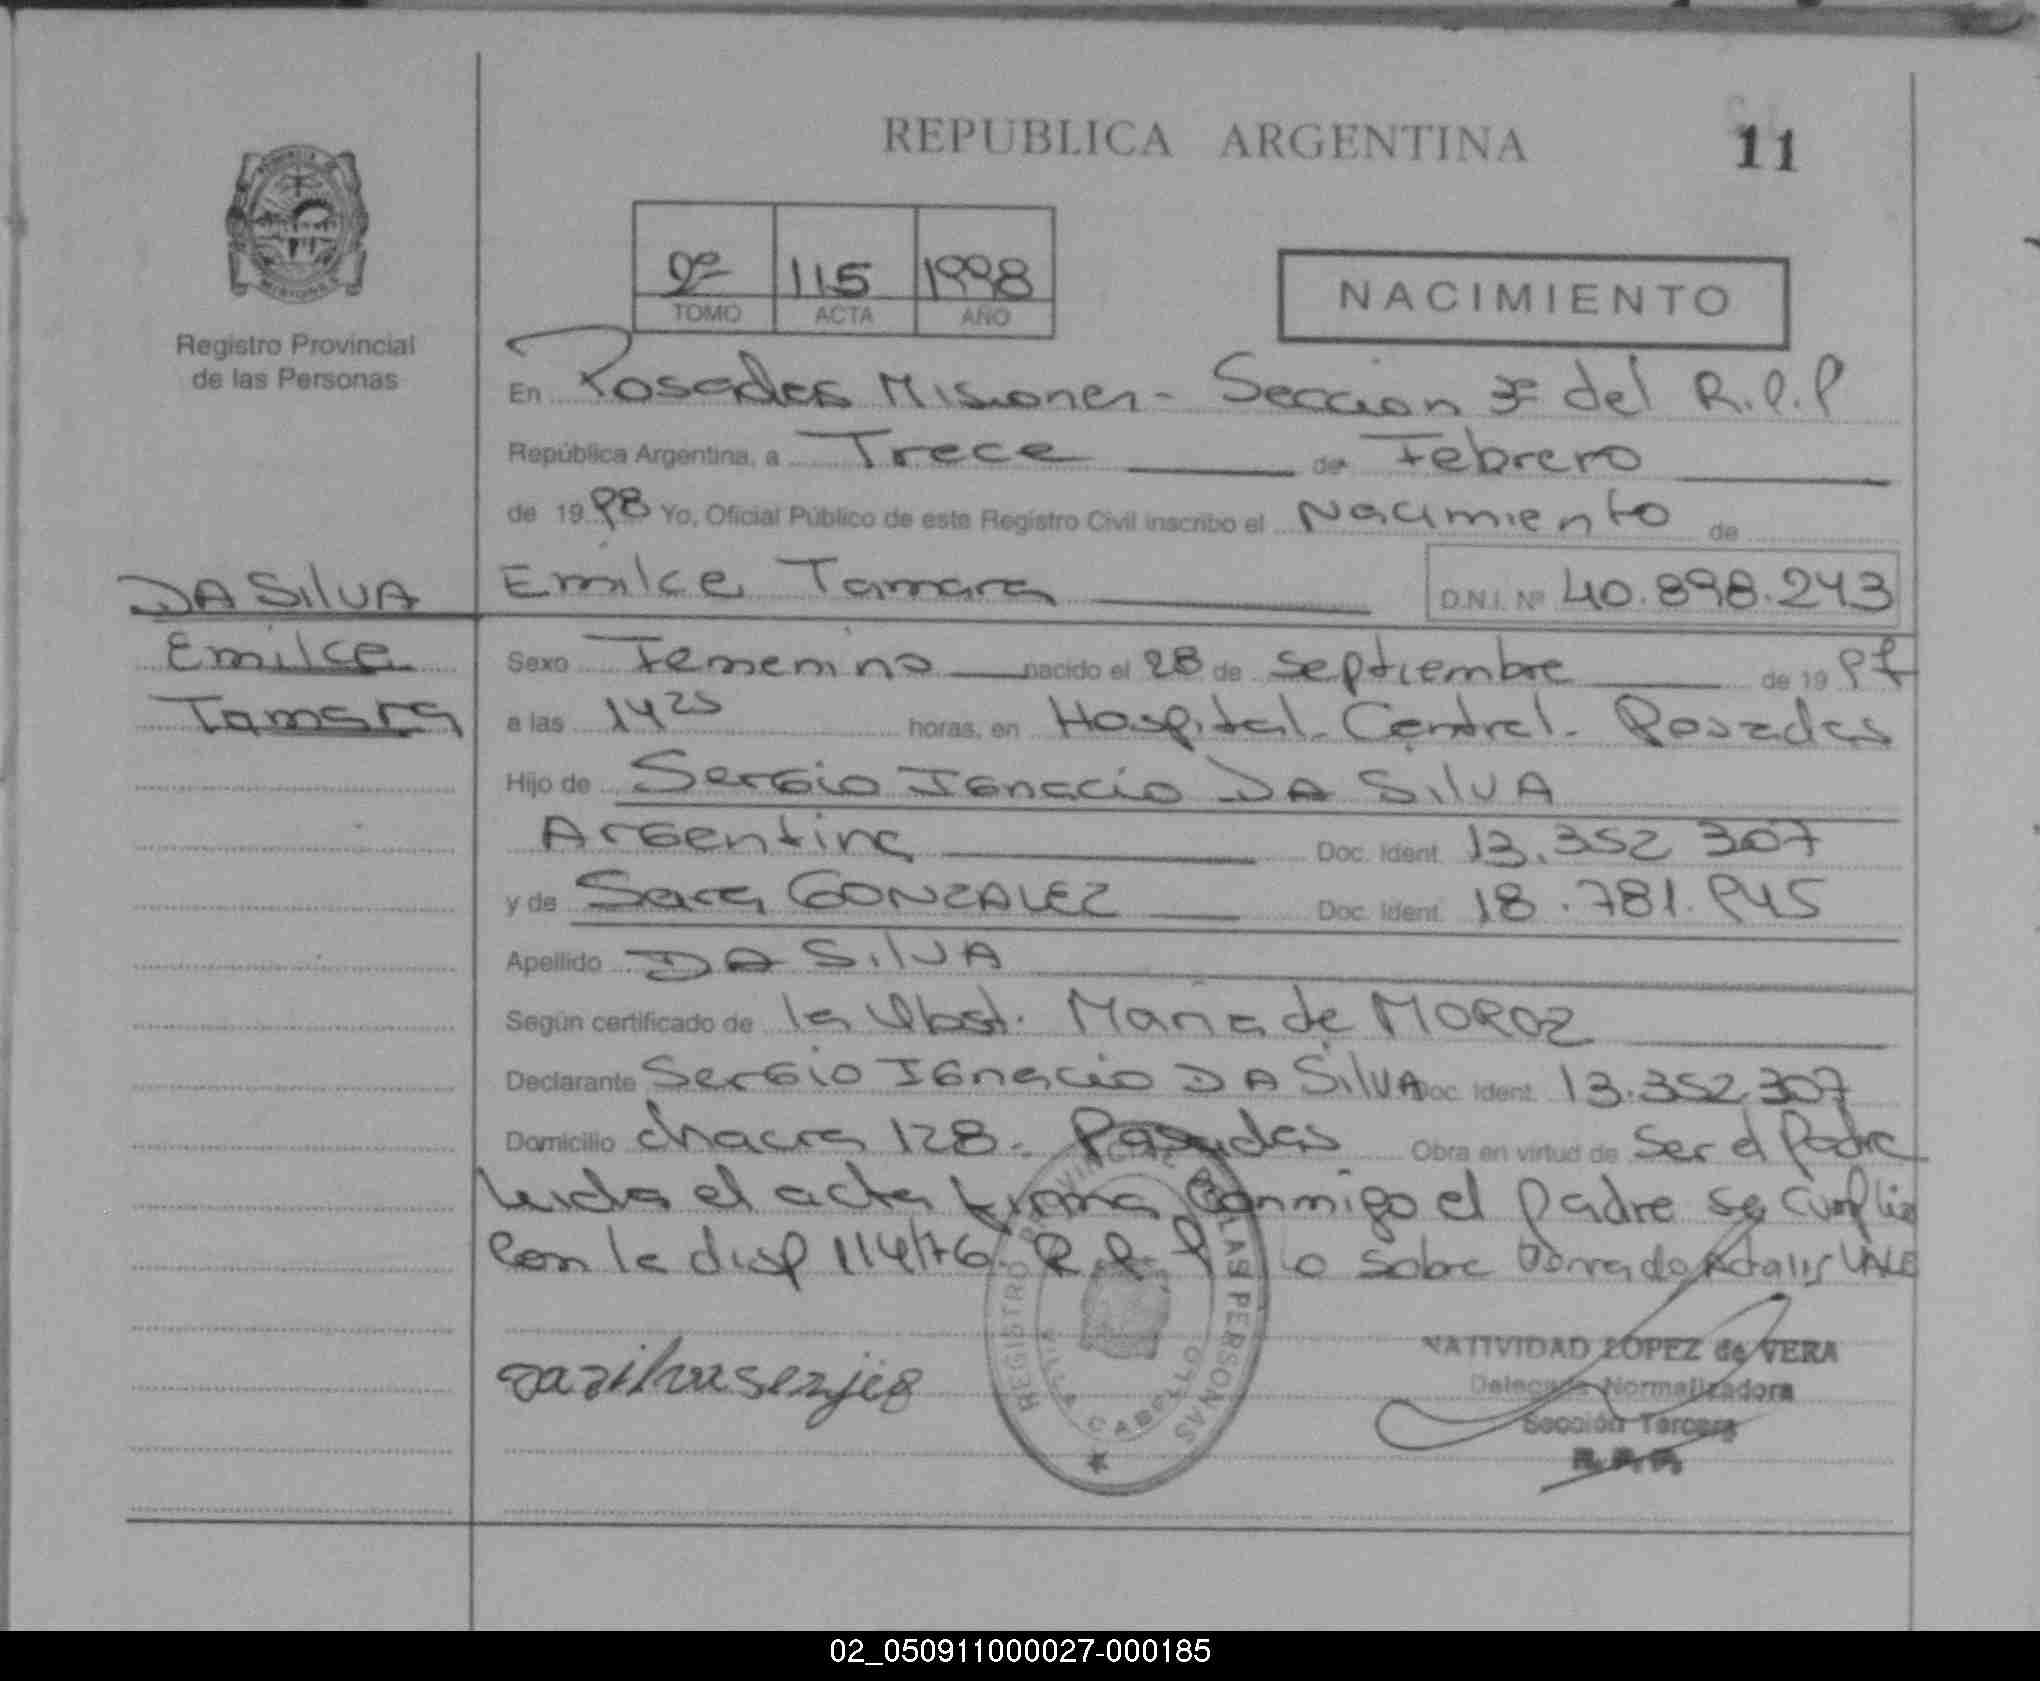 REPUBLICA ARGENTINA
11
Registro Provincial
de las Personas
2º 115 1998
TOMO ACTA AÑO
NACIMIENTO
En Posadas Misiones - Seccion 3º del R.P.P
República Argentina, a Trece de Febrero
de 1998 Yo, Oficial Público de este Registro Civil inscribo el Nacimiento de
DA SilVA
Emilce
Tamara
Emilce Tamara D.N.I. Nº 40.898.243
Sexo Femenino nacido el 28 de septiembre de 1997
a las 14 25 horas, en Hospital Central - Posadas
Hijo de Sergio Ignacio DA SilVA
Argentina Doc. Ident. 13.352 307
y de Sara GONZALEZ Doc. Ident. 18.781.945
Apellido DA SilVA
Según certificado de la Obst. Maria de MOROZ
Declarante Sergio Ignacio DA SilVA Doc. Ident. 13.352.307
Domicilio chacra 128 - Posadas Obra en virtud de Ser el Padre
Leida el acta firma Conmigo el padre se cumplio
Con la disp 114/76 R.P.P lo sobre Borrado VALE
REGISTRO PROVINCIAL DE LAS PERSONAS
VILLA CABELLO
NATIVIDAD LOPEZ de VERA
Delegada Normalizadora
Sección Tercera
R.P.P.
02_050911000027-000185